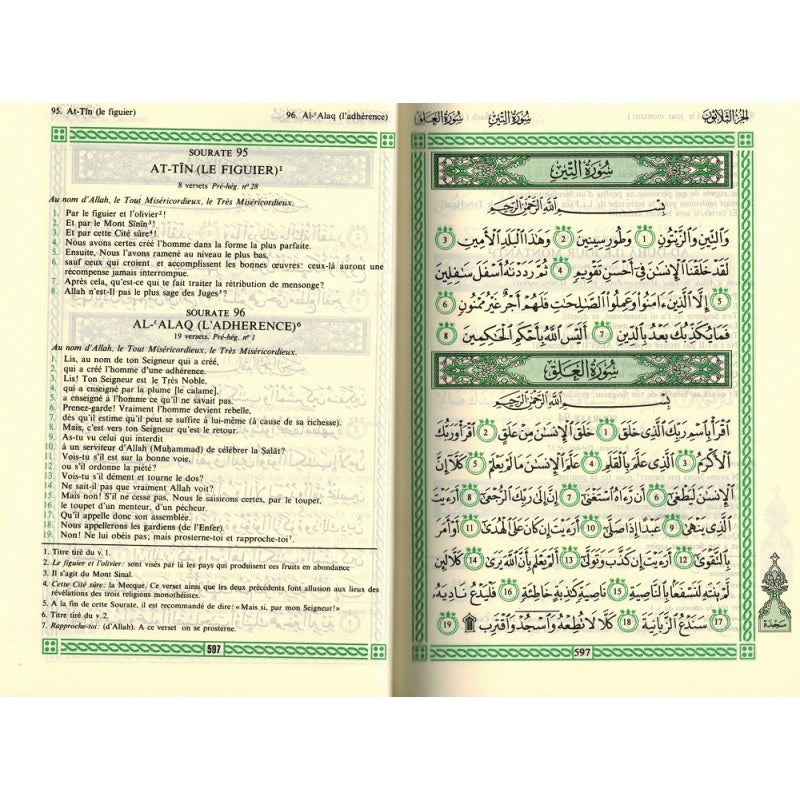 95. At-Tīn (le figuier)
96. Al-ʿAlaq (l'adhérence)
SOURATE 95
AT-TĪN (LE FIGUIER)¹
8 versets Pré-hég. n° 28
Au nom d'Allah, le Tout Miséricordieux, le Très Miséricordieux.
1. Par le figuier et l'olivier²!
2. Et par le Mont Sīnīn³!
3. Et par cette Cité sûre⁴!
4. Nous avons certes créé l'homme dans la forme la plus parfaite.
5. Ensuite, Nous l'avons ramené au niveau le plus bas,
6. sauf ceux qui croient et accomplissent les bonnes œuvres: ceux-là auront une
récompense jamais interrompue.
7. Après cela, qu'est-ce qui te fait traiter la rétribution de mensonge?
8. Allah n'est-Il pas le plus sage des Juges⁵?
SOURATE 96
AL-ʿALAQ (L'ADHERENCE)⁶
19 versets. Pré-hég. n° 1
Au nom d'Allah, le Tout Miséricordieux, le Très Miséricordieux.
1. Lis, au nom de ton Seigneur qui a créé,
2. qui a créé l'homme d'une adhérence.
3. Lis! Ton Seigneur est le Très Noble,
4. qui a enseigné par la plume [le calame],
5. a enseigné à l'homme ce qu'il ne savait pas.
6. Prenez-garde! Vraiment l'homme devient rebelle,
7. dès qu'il estime qu'il peut se suffire à lui-même (à cause de sa richesse).
8. Mais, c'est vers ton Seigneur qu'est le retour.
9. As-tu vu celui qui interdit
10. à un serviteur d'Allah (Muḥammad) de célébrer la Ṣalāt?
11. Vois-tu s'il est sur la bonne voie,
12. ou s'il ordonne la piété?
13. Vois-tu s'il dément et tourne le dos?
14. Ne sait-il pas que vraiment Allah voit?
15. Mais non! S'il ne cesse pas, Nous le saisirons certes, par le toupet,
16. le toupet d'un menteur, d'un pécheur.
17. Qu'il appelle donc son assemblée.
18. Nous appellerons les gardiens (de l'Enfer).
19. Non! Ne lui obéis pas; mais prosterne-toi et rapproche-toi⁷.
1. Titre tiré du v. 1.
2. Le figuier et l'olivier: sont visés par là les pays qui produisent ces fruits en abondance
3. Il s'agit du Mont Sinaï.
4. Cette Cité sûre: la Mecque. Ce verset ainsi que les deux précédents font allusion aux lieux des
révélations des trois religions monothéistes.
5. A la fin de cette Sourate, il est recommandé de dire: «Mais si, par mon Seigneur!»
6. Titre tiré du v.2.
7. Rapproche-toi: (d'Allah). A ce verset on se prosterne.
597
الجزء الثلاثون
سورة التين
سورة العلق
سُورَةُ التِّينِ
بِسْمِ اللَّهِ الرَّحْمَٰنِ الرَّحِيمِ
وَالتِّينِ وَالزَّيْتُونِ ١ وَطُورِ سِينِينَ ٢ وَهَٰذَا الْبَلَدِ الْأَمِينِ ٣
لَقَدْ خَلَقْنَا الْإِنسَٰنَ فِي أَحْسَنِ تَقْوِيمٍ ٤ ثُمَّ رَدَدْنَٰهُ أَسْفَلَ سَٰفِلِينَ
٥ إِلَّا الَّذِينَ ءَامَنُوا وَعَمِلُوا الصَّٰلِحَٰتِ فَلَهُمْ أَجْرٌ غَيْرُ مَمْنُونٍ ٦
فَمَا يُكَذِّبُكَ بَعْدُ بِالدِّينِ ٧ أَلَيْسَ اللَّهُ بِأَحْكَمِ الْحَٰكِمِينَ ٨
سُورَةُ العَلَقِ
بِسْمِ اللَّهِ الرَّحْمَٰنِ الرَّحِيمِ
اقْرَأْ بِاسْمِ رَبِّكَ الَّذِي خَلَقَ ١ خَلَقَ الْإِنسَٰنَ مِنْ عَلَقٍ ٢ اقْرَأْ وَرَبُّكَ
الْأَكْرَمُ ٣ الَّذِي عَلَّمَ بِالْقَلَمِ ٤ عَلَّمَ الْإِنسَٰنَ مَا لَمْ يَعْلَمْ ٥ كَلَّا إِنَّ
الْإِنسَٰنَ لَيَطْغَىٰ ٦ أَن رَّءَاهُ اسْتَغْنَىٰ ٧ إِنَّ إِلَىٰ رَبِّكَ الرُّجْعَىٰ ٨ أَرَءَيْتَ
الَّذِي يَنْهَىٰ ٩ عَبْدًا إِذَا صَلَّىٰ ١٠ أَرَءَيْتَ إِن كَانَ عَلَى الْهُدَىٰ ١١ أَوْ أَمَرَ
بِالتَّقْوَىٰ ١٢ أَرَءَيْتَ إِن كَذَّبَ وَتَوَلَّىٰ ١٣ أَلَمْ يَعْلَم بِأَنَّ اللَّهَ يَرَىٰ ١٤ كَلَّا لَئِن
لَّمْ يَنتَهِ لَنَسْفَعًا بِالنَّاصِيَةِ ١٥ نَاصِيَةٍ كَٰذِبَةٍ خَاطِئَةٍ ١٦ فَلْيَدْعُ نَادِيَهُ
١٧ سَنَدْعُ الزَّبَانِيَةَ ١٨ كَلَّا لَا تُطِعْهُ وَاسْجُدْ وَاقْتَرِب ۩ ١٩
سجدة
597